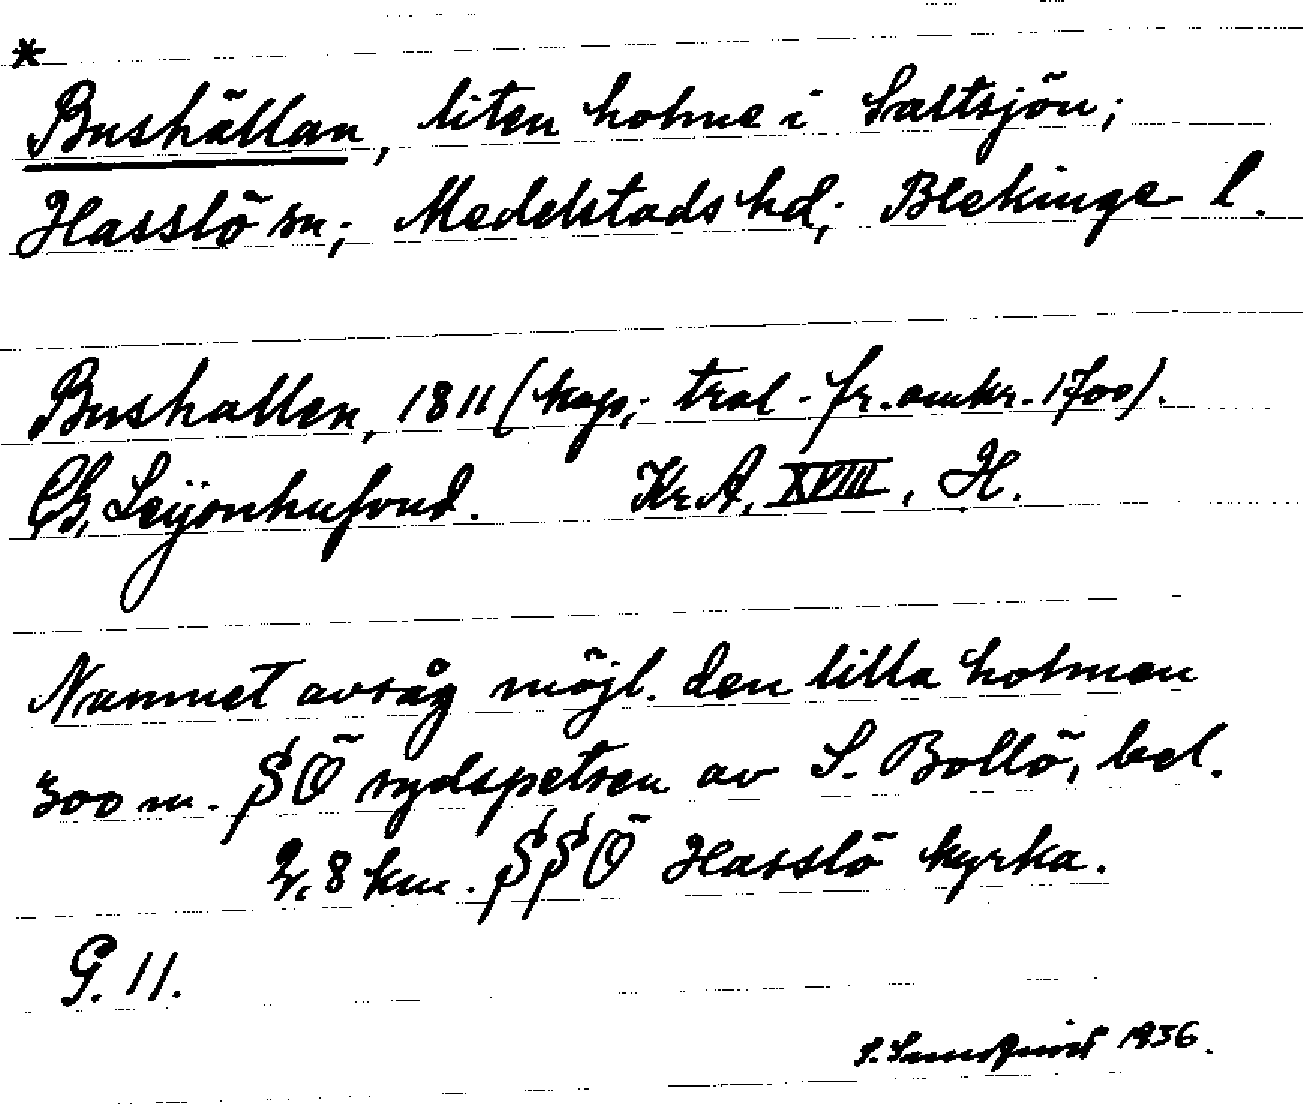 *
Bushällan, liten holme i Saltsjön;
Hasslö sn; Medelstads hd; Blekinge l.
Bushallen, 1811 (kop; trol. fr. omkr. 1700).
Ch. Leijonhufvud. Kr. A. XVIII, H.
Namnet avsåg möjl. den lilla holmen
300 m. SÖ sydspetsen av S. Bollö, bel.
2,8 km. SSÖ Hasslö kyrka.
G. 11.
S. Sundqvist 1936.